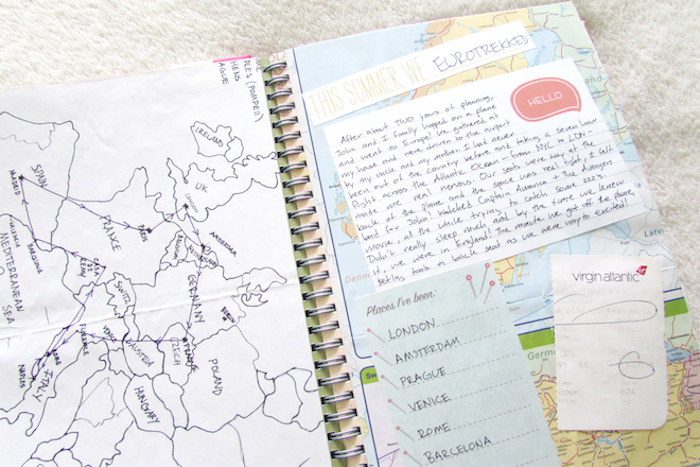 THIS SUMMER WE EUROTREKKED
HELLO
After about TWO years of planning,
John and I finally hopped on a plane
and went to Europe! We gathered at
my house and were driven to the airport
by my uncle and my mother. I had never
been out of the country before and taking a seven hour
flight across the Atlantic Ocean - from NYC to LON -
made me real nervous. Our seats were way at the
back of the plane and the space was real tight, I felt
bad for John! Watched Captain America & The Avengers
movie, all the while trying to catch some zzz's.
Didn't really sleep much and by the time we knew
it, we were in England! The minute we got off the plane,
settling took a back seat as we were way to excited!
Places I've been:
LONDON
AMSTERDAM
PRAGUE
VENICE
ROME
BARCELONA
virgin atlantic
Germ
Latvi
Denm
(POMPEII)
HENS
AGUE
IRELAND
UK
SPAIN
MADRID
FRANCE
PARIS
BARCELONA
MEDITERRANEAN
SEA
AMSTERDAM
BELGIUM
GERMANY
BERLIN
SWITZ
AUSTRIA
CZECH
PRAGUE
POLAND
HUNGARY
VENICE
FLORENCE
ROME
NAPLES
ITALY